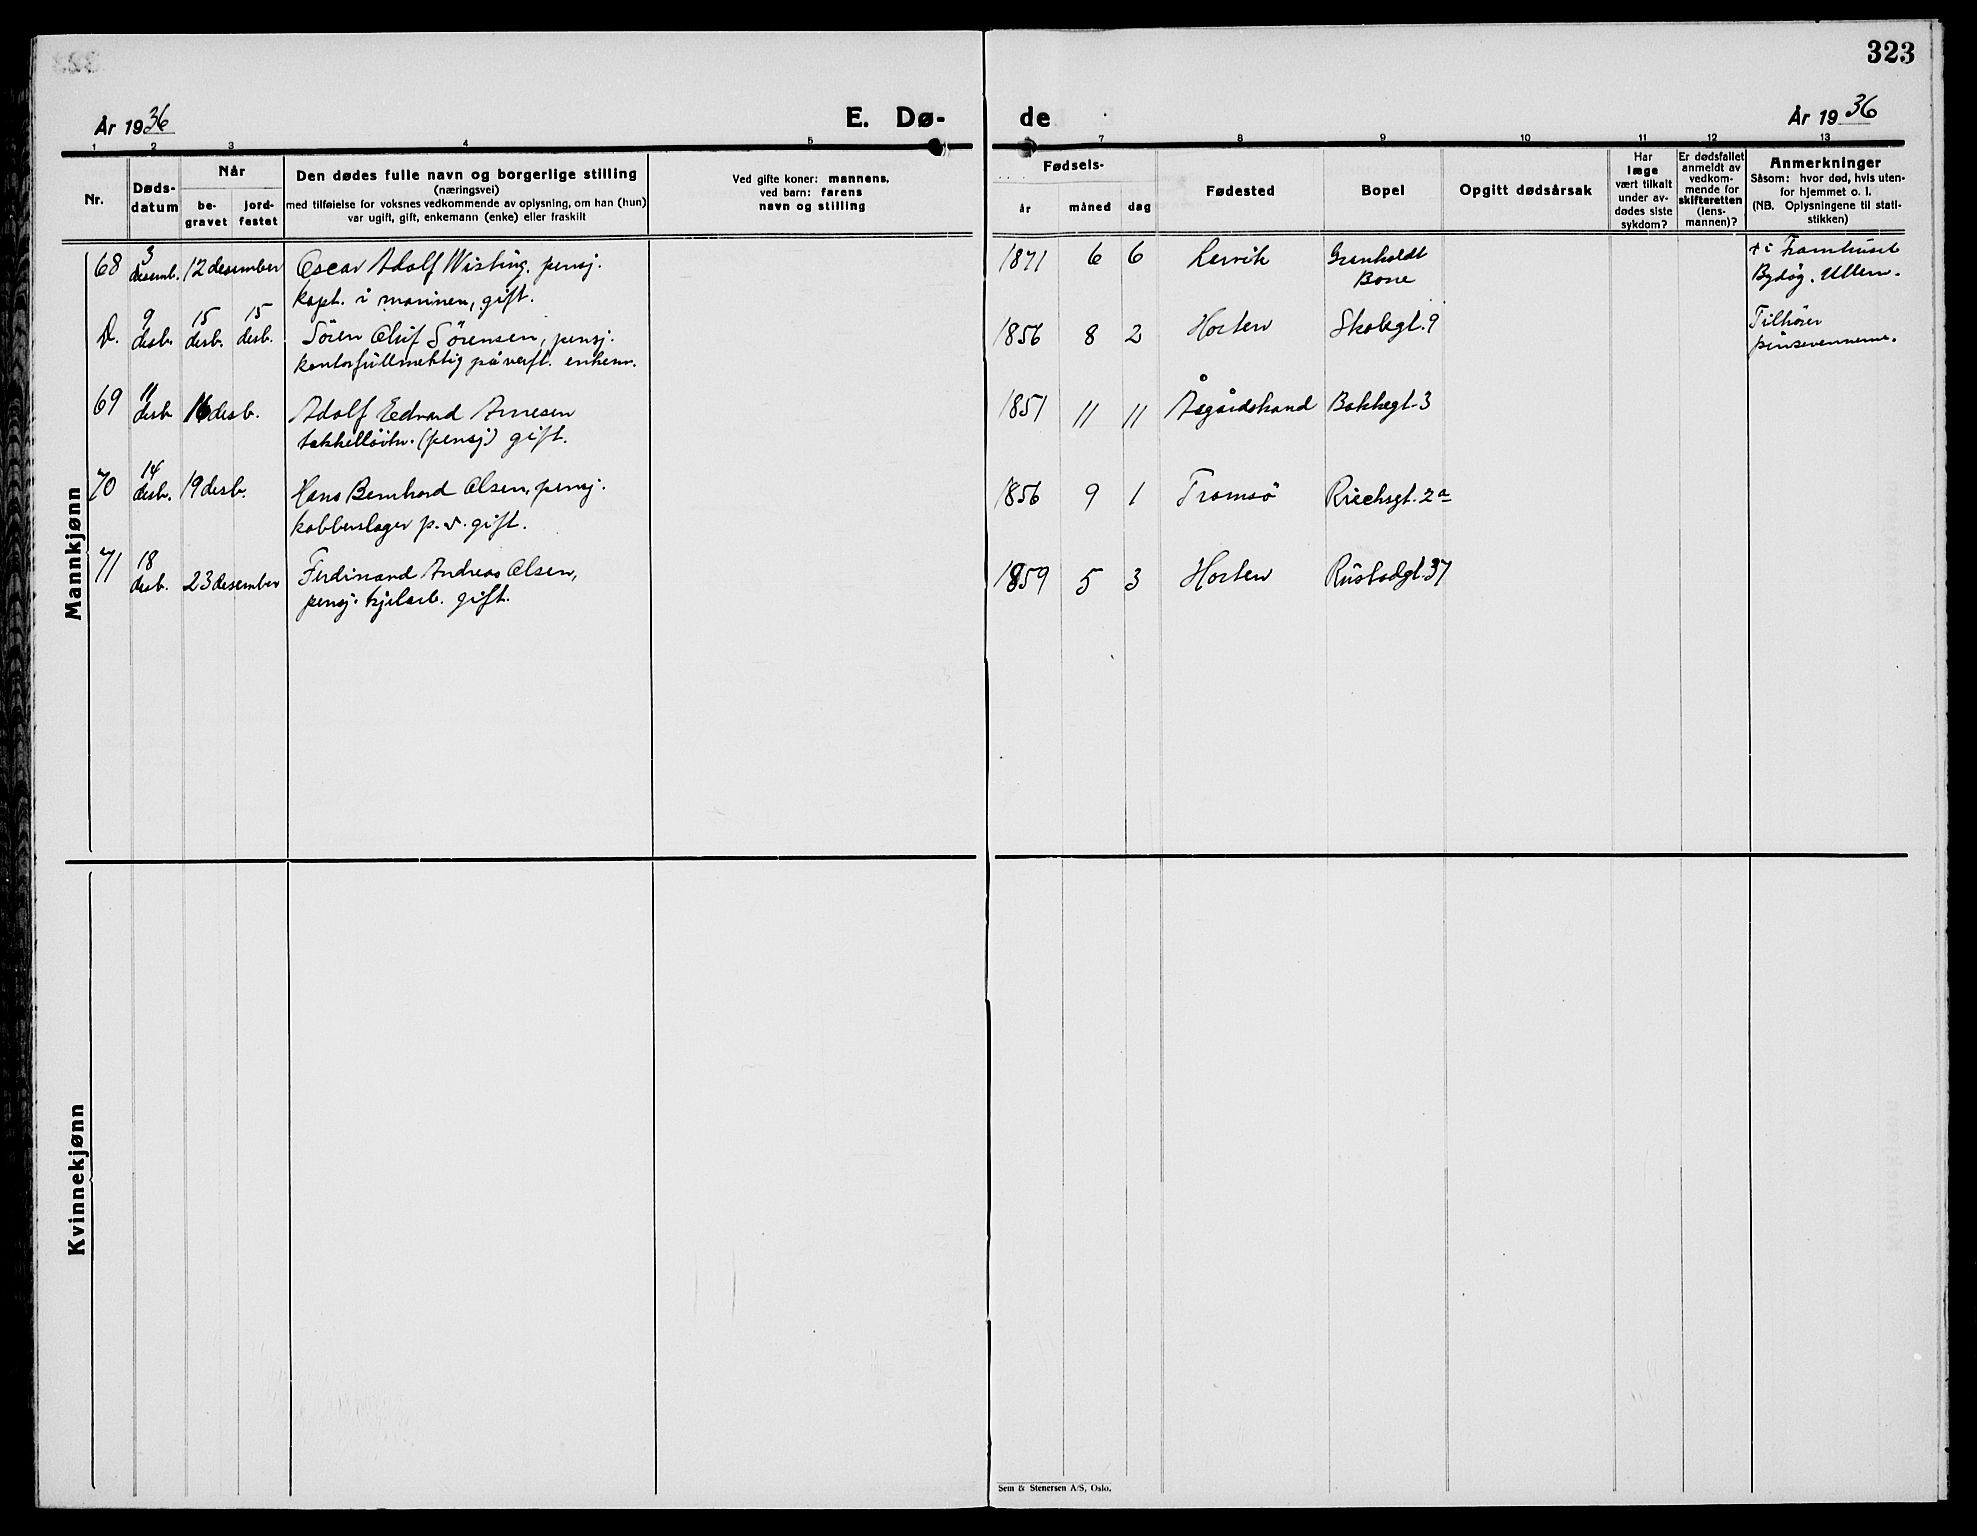 323
År 1936
E. Dø-
de
År 1936
1 2 3 4 5 7 8 9 10 11 12 13
Nr.
Døds-
datum
Når
be-
gravet
jord-
festet
Den dødes fulle navn og borgerlige stilling
(næringsvei)
med tilføielse for voksnes vedkommende av oplysning, om han (hun)
var ugift, gift, enkemann (enke) eller fraskilt
Ved gifte koner: mannens,
ved barn: farens
navn og stilling
Fødsels-
år måned dag
Fødested
Bopel
Opgitt dødsårsak
Har
læge
vært tilkalt
under av-
dødes siste
sykdom?
Er dødsfallet
anmeldt av
vedkom-
mende for
skifteretten
(lens-
mannen)?
Anmerkninger
Såsom: hvor død, hvis uten-
for hjemmet o. l.
(NB. Oplysningene til stati-
stikken)
Mannkjønn
68 3 desemb. 12 desember Oscar Adolf Wisting, pensj. 1871 6 6 Larvik Granholdt † i Framhuset
kapt. i marinen, gift. Bydøy. Ullern.
D. 9 desb. 15 desb. 15 desb. Sören Oluf Sørensen, pensj. 1856 8 2 Horten Skolegt. 9 Tilhører
kontorfullmektig på verft. enkem. pinsevennerne.
69 11 desb. 16 desb. Adolf Edvard Arnesen 1851 11 11 Åsgårdstrand Bakkegt. 3
takkelløitn. (pensj.) gift.
70 14 desb. 19 desb. Hans Bernhard Olsen, pensj. 1856 9 1 Tromsö Riechsgt. 2a
kobberslager p. v. gift.
71 18 desb. 23 desember Ferdinand Andreas Olsen, 1859 5 3 Horten Rustadgt. 37
pensj. kjelarb. gift.
Kvinnekjønn
Sem & Stenersen A/S, Oslo.